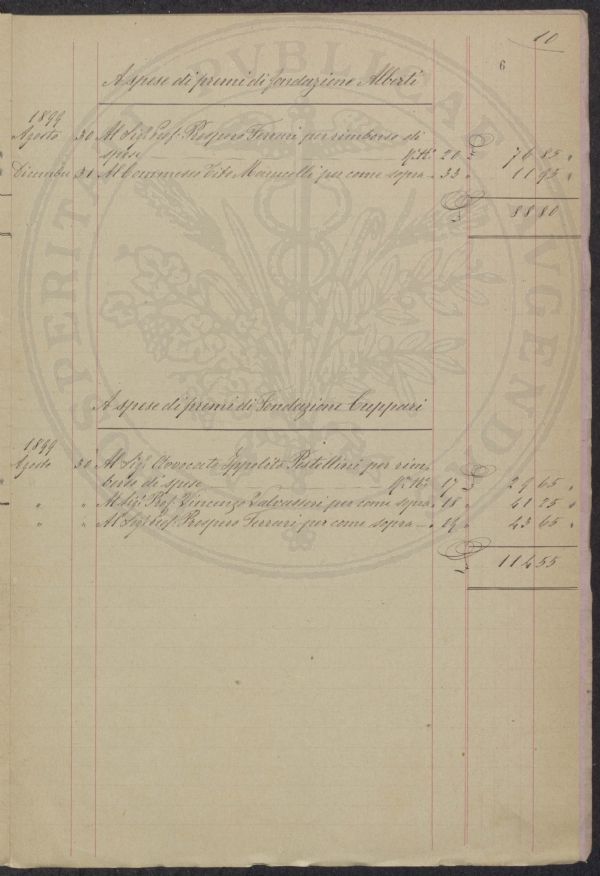 10
6
A spese di premi di fondazione Alberti
1899
Agosto 30 Al Sig.r Prof. Prospero Ferrari per rimborso di
spese 20 £ 76 85 "
Dicembre 31 Al Commesso Tito Marucelli per come sopra - " 33 " 11 95 "
£ 88 80
A spese di premi di Fondazione Cuppari
1899
Agosto 30 Al Sig.r Avvocato Ippolito Pestellini per rim-
borso di spese 17 £ 29 65 "
" " Al Sig.r Prof. Vincenzo Valvassori per come sopra " 18 " 41 25 "
" " Al Sig.r Prof. Prospero Ferrari per come sopra - " 24 " 43 65 "
£ 114 55
PROSPERITATI PUBLICAE AUGENDAE